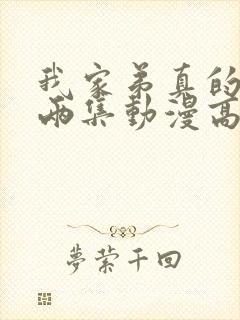 我家弟真的
兩集動漫高
夢縈千回